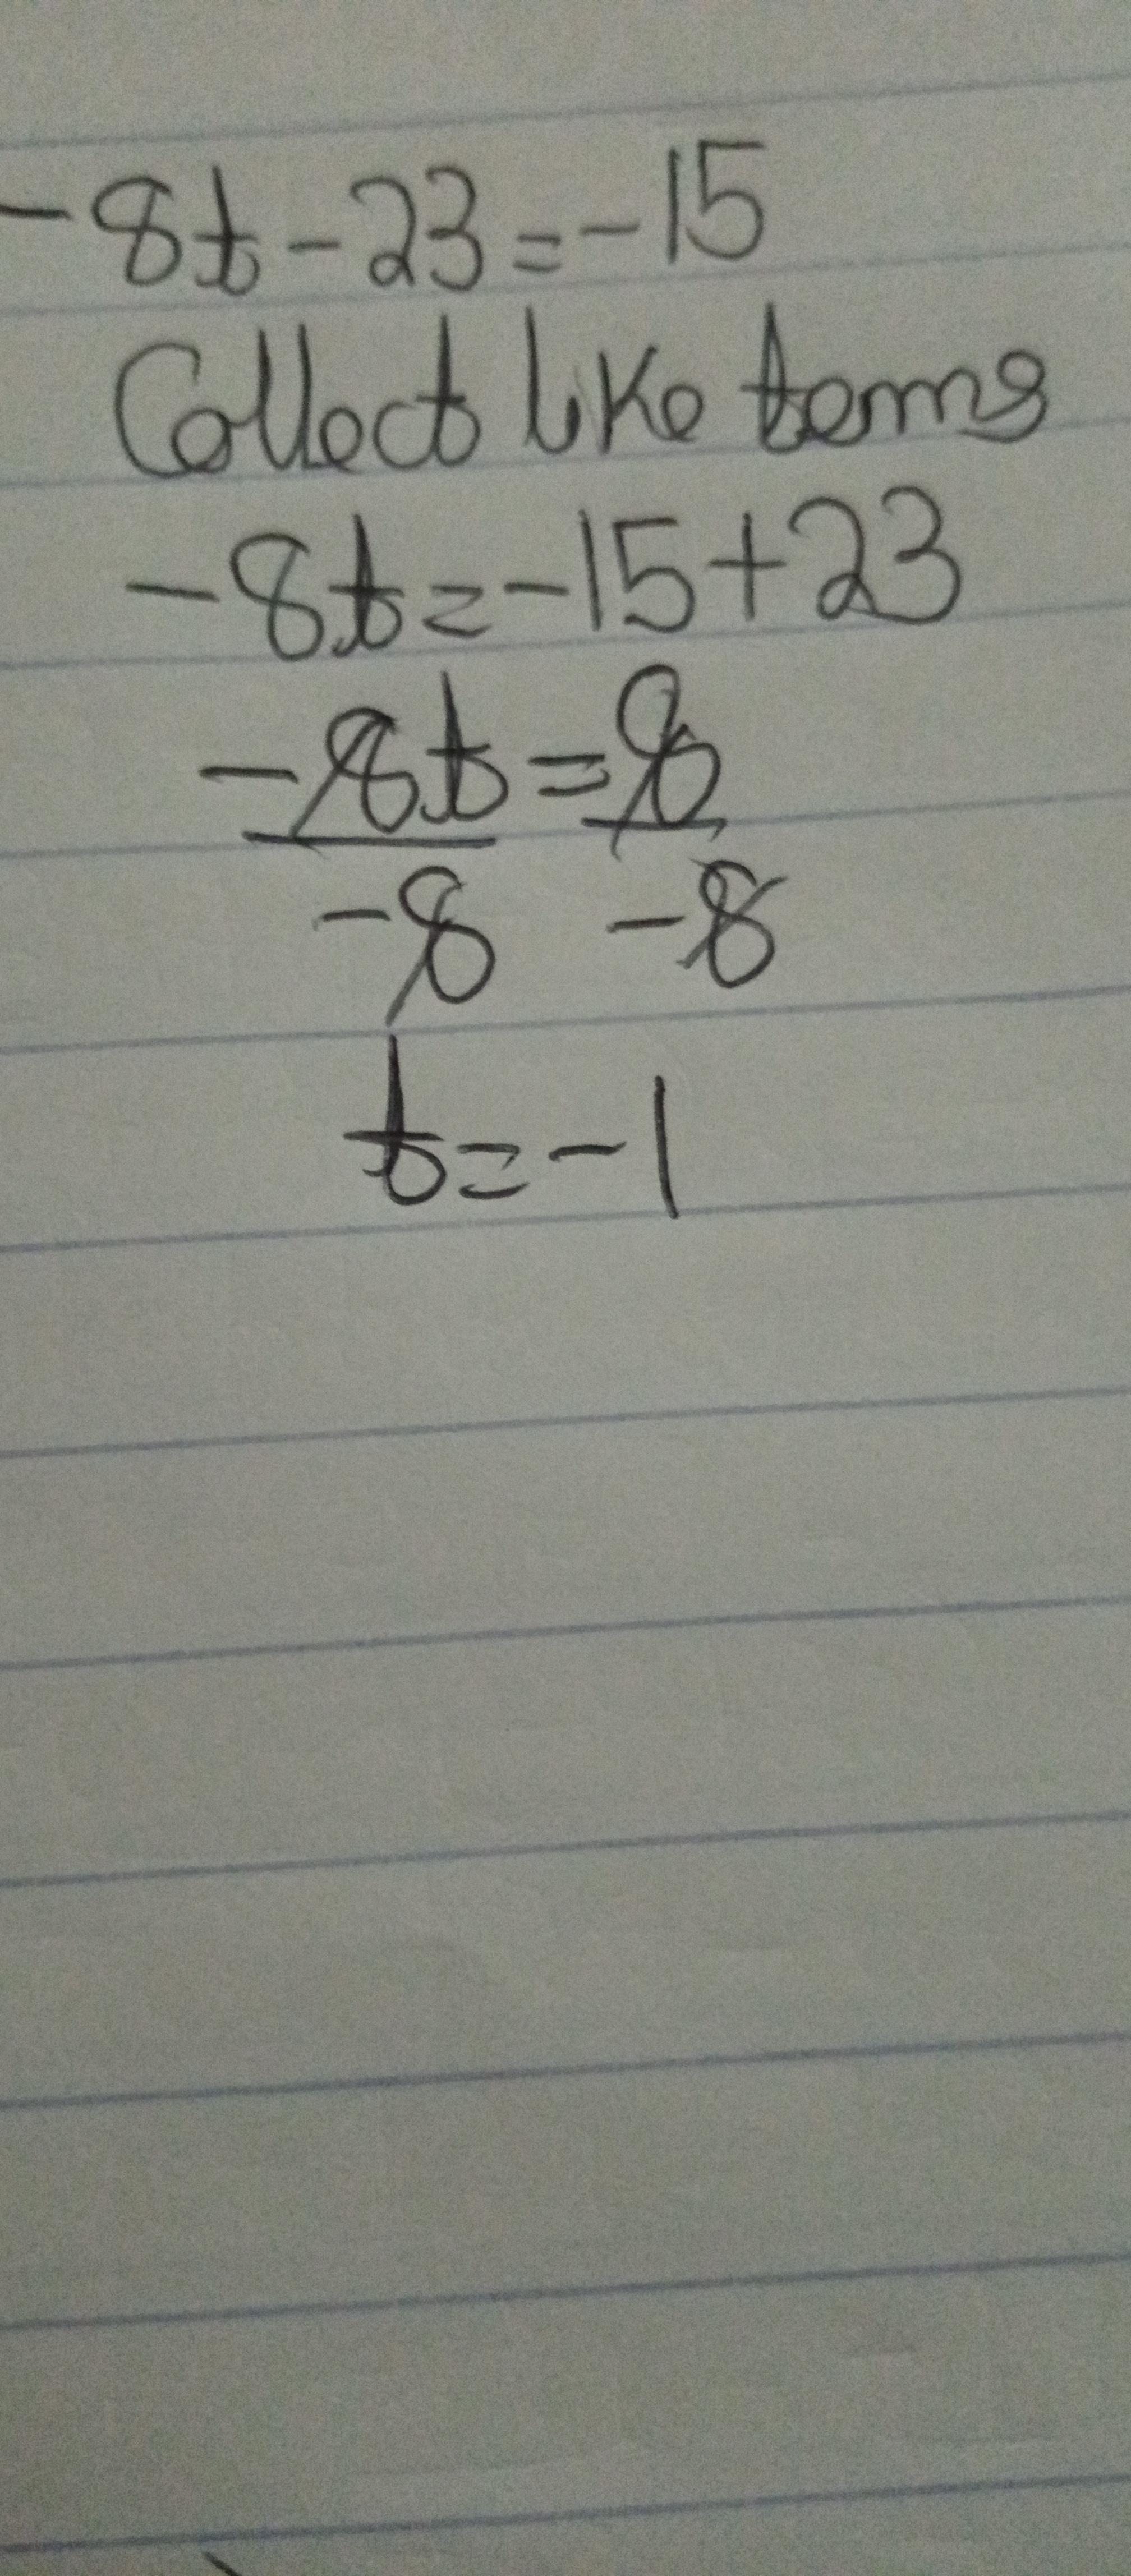 -8t-23=-15
Collect like terms
-8t=-15+23
-8t=8
-8 -8
t=-1